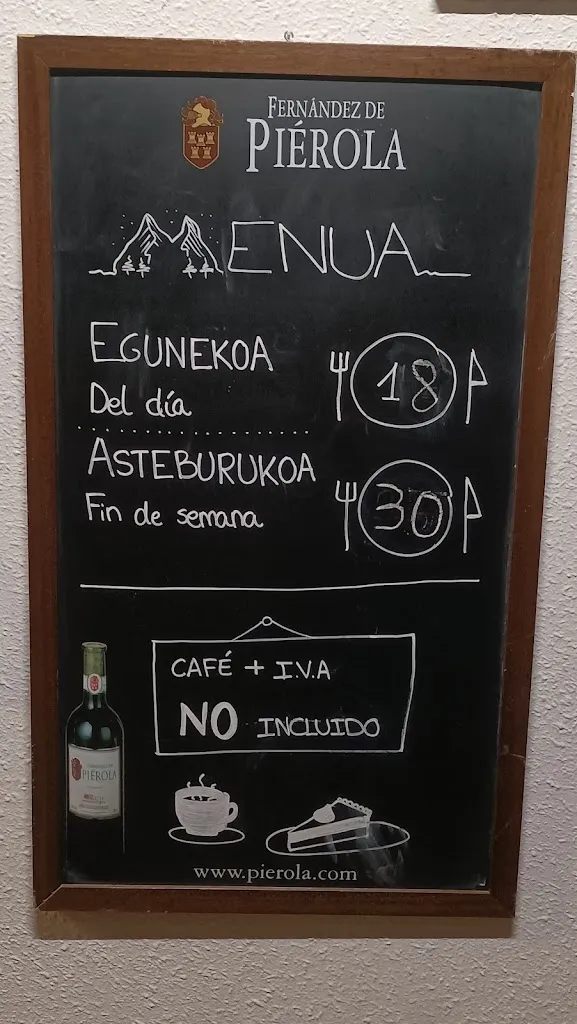 FERNÁNDEZ DE
PIÉROLA
MENUA
EGUNEKOA
Del día
18
ASTEBURUKOA
Fin de semana
30
CAFÉ + I.V.A
NO INCLUIDO
PIÉROLA
www.pierola.com